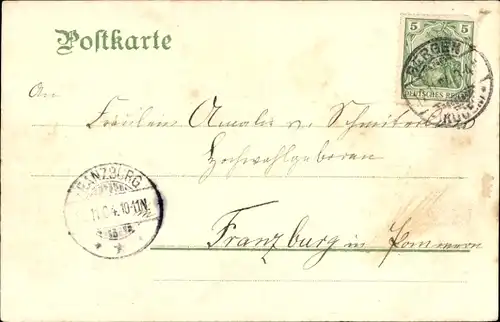 Postkarte
5
DEUTSCHES REICH
BERGEN
An
Fräulein Amalie v.
Hochwohlgeboren
FRANZBURG
10-11N.
Franzburg in Pommern